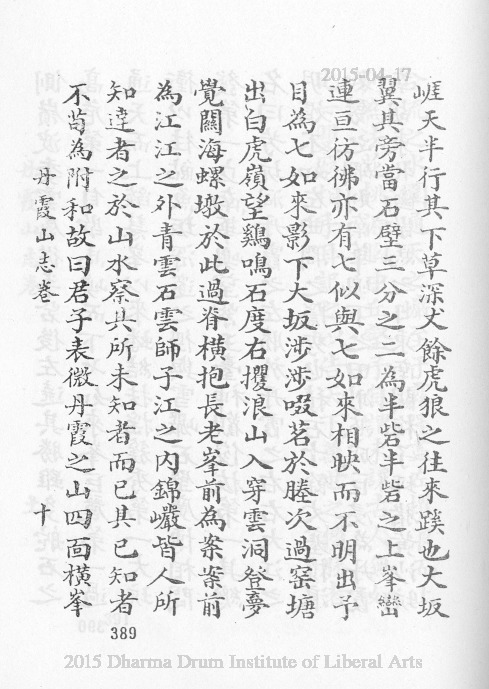 2015-04-17
崕天半行其下草深犬餘虎狼之往來蹊也大坂
翼其旁當石壁三分之二為半砦半砦之上峯巒
連亘彷彿亦有七似與七如來相映而不明出予
目為七如來影下大坂涉涉啜茗於塍次過窑塘
出白虎嶺望鷄鳴石度右攖浪山入穿雲洞登夢
覺關海螺墩於此過脊橫抱長老峯前為案案前
為江江之外青雲石雲師子江之内錦巖皆人所
知達者之於山水察其所未知者而已其已知者
不苟為附和故曰君子表微丹霞之山四面橫峯
丹霞山志卷 十
389
2015 Dharma Drum Institute of Liberal Arts